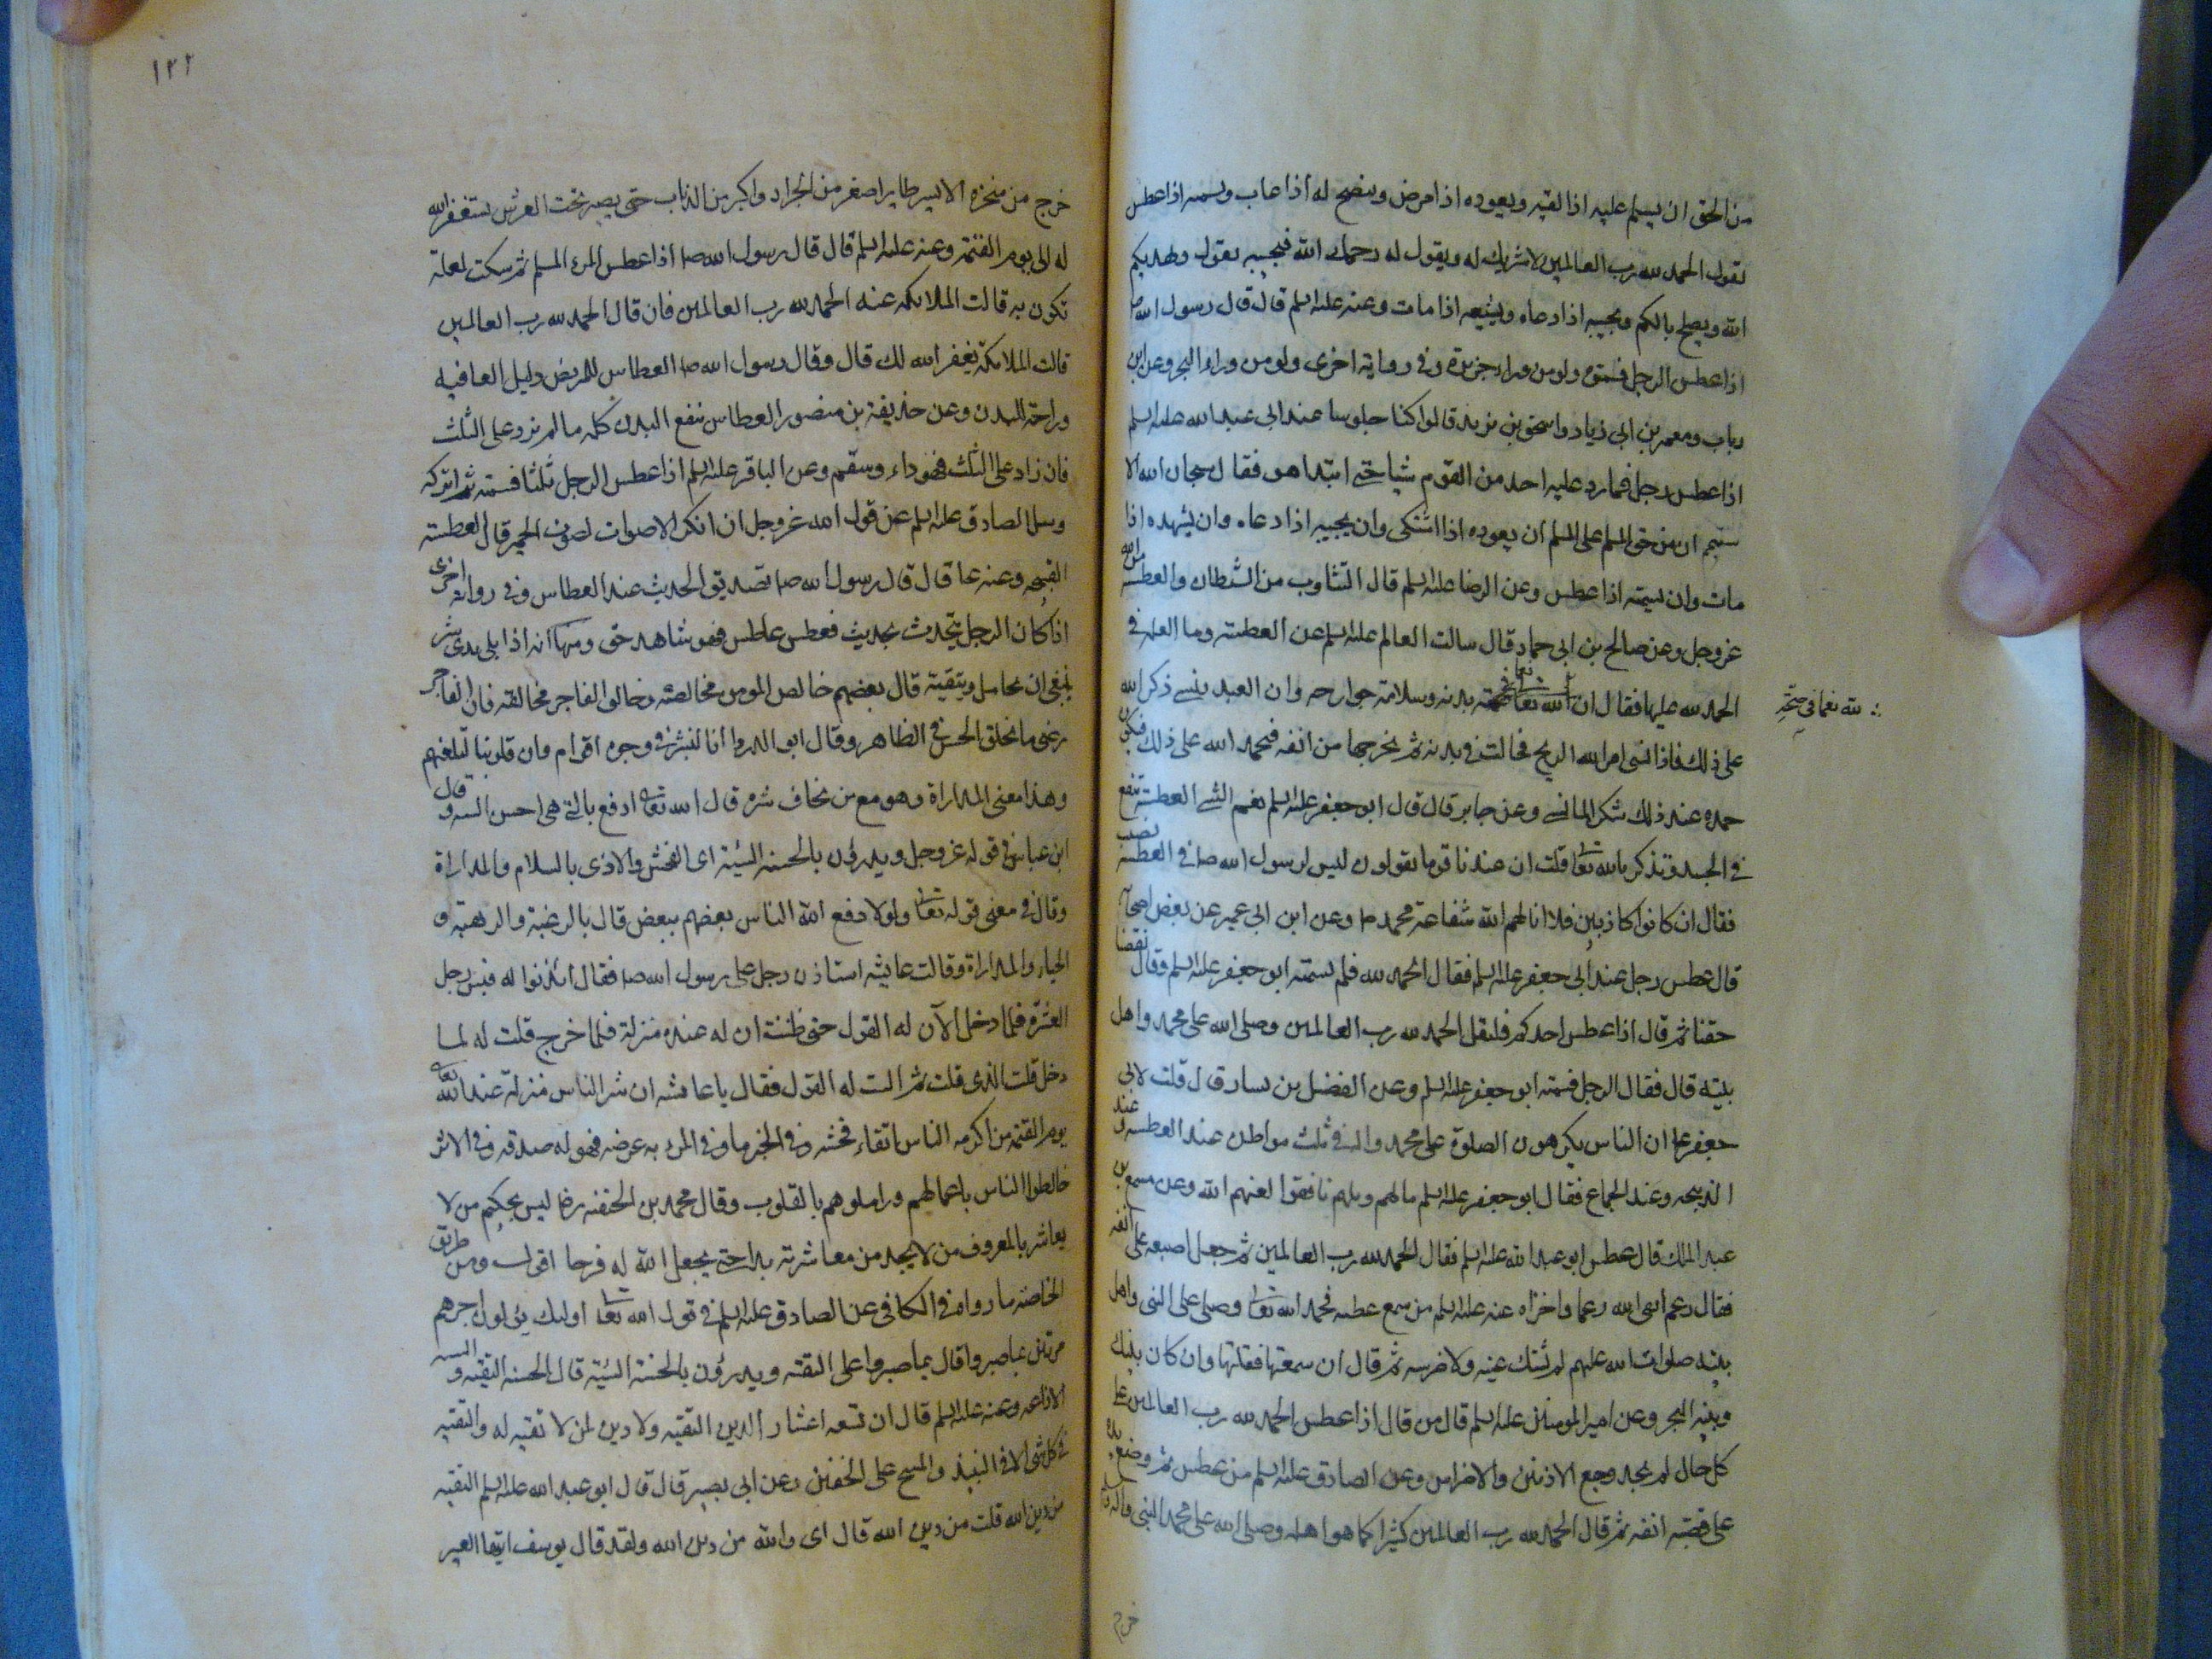 من الحق ان يسلم عليه اذا لقيه ويعوده اذا مرض وينصح له اذا غاب ويسمته اذا عطس
يقول الحمد لله رب العالمين لا شريك له ويقول له رحمك الله فيجيبه يقول يهديكم
الله ويصلح بالكم ويجيبه اذا دعاه ويتبعه اذا مات وعنه عليه السلم قال قال رسول الله ص
اذا عطس الرجل فسمتوه ولو من وراء جزيرة وفي رواية اخرى ولو من وراء البحر وعن ابن
رياب ومعمر بن ابي زياد واسحق بن يزيد قالوا كنا جلوسا عند ابي عبد الله عليه السلم
اذا عطس رجل فما رد عليه احد من القوم شيئا حتى ابتدا هو فقال سبحان الله الا
سمتم ان من حق المسلم على المسلم ان يعوده اذا اشتكى وان يجيبه اذا دعاه وان يشهده اذا
مات وان يسمته اذا عطس وعن الرضا عليه السلم قال التثاوب من الشيطان والعطسة من الله
عز وجل وعن صالح بن ابي حماد قال سالت العالم عليه السلم عن العطسة وما العلة في
الحمد لله عليها فقال ان لله نعما في صحة بدنه وسلامة جوارحه وان العبد ينسى ذكر الله
على ذلك فاذا نسى امر الله الريح فجالت في بدنه ثم يخرجها من انفه فيحمد الله على ذلك فيكون
حمده عند ذلك شكرا لما نسى وعن جابر قال قال ابو جعفر عليه السلم نعم الشئ العطسة تنفع
في الجسد وتذكر بالله تعالى قلت ان عندنا قوما يقولون ليس لرسول الله ص في العطسة نصيب
فقال ان كانوا كاذبين فلا انالهم الله شفاعة محمد ص وعن ابن ابي عمير عن بعض اصحابه
قال عطس رجل عند ابي جعفر عليه السلم فقال الحمد لله فلم يسمته ابو جعفر عليه السلم وقال نقصنا
حقنا ثم قال اذا عطس احدكم فليقل الحمد لله رب العالمين وصلى الله على محمد واهل
بيته قال فقال الرجل فسمته ابو جعفر عليه السلم وعن الفضل بن يسار قال قلت لابي
جعفر ع ان الناس يكرهون الصلوة على محمد واله في ثلث مواطن عند العطسة وعند
الذبيحة وعند الجماع فقال ابو جعفر عليه السلم مالهم ويلهم نافقوا لعنهم الله وعن مسمع بن
عبد الملك قال عطس ابو عبد الله عليه السلم فقال الحمد لله رب العالمين ثم جعل اصبعه على انفه
فقال رغم انفي لله رغما داخرا وعنه عليه السلم من سمع عطسة فحمد الله تعالى وصلى على النبي واهل
بيته صلوات الله عليهم لم يشتك عينه ولا ضرسه ثم قال ان سمعتها فقلها وان كان بينك
وبينه البحر وعن امير المومنين عليه السلم قال من قال اذا عطس الحمد لله رب العالمين على
كل حال لم يجد وجع الاذنين والاضراس وعن الصادق عليه السلم من عطس ثم وضع يده
على قصبة انفه ثم قال الحمد لله رب العالمين كثيرا كما هو اهله وصلى الله على محمد النبي واله
لله نعما في صحة
خرج
١٢٢
خرج من منخره الايسر طاير اصغر من الجراد واكبر من الذباب حتى يصير تحت العرش يستغفر الله
له الى يوم القيمة وعنه عليه السلم قال قال رسول الله ص اذا عطس المرء المسلم ثم سكت لعلة
تكون به قالت الملائكة عنه الحمد لله رب العالمين فان قال الحمد لله رب العالمين
قالت الملائكة يغفر الله لك قال وقال رسول الله ص العطاس للمريض دليل العافية
وراحة البدن وعن حذيفة بن منصور العطاس ينفع البدن كله ما لم يزد على الثلث
فان زاد على الثلث فهو داء وسقم وعن الباقر عليه السلم اذا عطس الرجل ثلثا فسمته ثم اتركه
وسئل الصادق عليه السلم عن قول الله عز وجل ان انكر الاصوات لصوت الحمير قال العطسة
القبيحة وعنه ع قال قال رسول الله ص تصديق الحديث عند العطاس وفي رواية اخرى
اذا كان الرجل يتحدث بحديث فعطس عاطس فهو شاهد حق ومنها انه اذا بلى بذى شر
ينبغي ان يجامل ويتقيه قال بعضهم خالص المومن مخالصة وخالق الفاجر مخالقة فان الفاجر
يرضى بالخلق الحسن في الظاهر وقال ابو الدردا انا لنبش في وجوه اقوام وان قلوبنا لتلعنهم
وهذا معنى المداراة وهو مع من يخاف شره قال الله تعالى ادفع بالتي هي احسن السيئة وقال
ابن عباس في قوله عز وجل ويدرؤن بالحسنة السيئة اى الفحش والاذى بالسلام والمداراة
وقال في معنى قوله تعالى ولولا دفع الله الناس بعضهم ببعض قال بالرغبة والرهبة و
الحياء والمداراة وقالت عايشه استاذن رجل على رسول الله ص فقال ائذنوا له فبئس رجل
العشرة فلما دخل الان له القول حتى ظننت ان له عنده منزلة فلما خرج قلت له لما
دخل قلت الذى قلت ثم النت له القول فقال يا عائشه ان شر الناس منزلة عند الله تعالى
يوم القيمة من اكرمه الناس اتقاء فحشه وفي الخبر ما وقى المرء به عرضه فهو له صدقة وفي الاثر
خالطوا الناس باعمالهم وزاملوهم بالقلوب وقال محمد بن الحنفيه رضا ليس بحكيم من لا
يعاشر بالمعروف من لا يجد من معاشرته بدا حتى يجعل الله له فرجا اقول ومن طريق
الخاصة ما رواه في الكافي عن الصادق عليه السلم في قول الله تعالى اولئك يؤتون اجرهم
مرتين بما صبروا قال بما صبروا على التقية ويدرؤن بالحسنة السيئة قال الحسنة التقية والسيئة
الاذاعة وعنه عليه السلم قال ان تسعة اعشار الدين التقية ولا دين لمن لا تقية له والتقية
في كل شئ الا في النبيذ والمسح على الخفين وعن ابي بصير قال قال ابو عبد الله عليه السلم التقية
من دين الله قلت من دين الله قال اى والله من دين الله ولقد قال يوسف ايتها العير